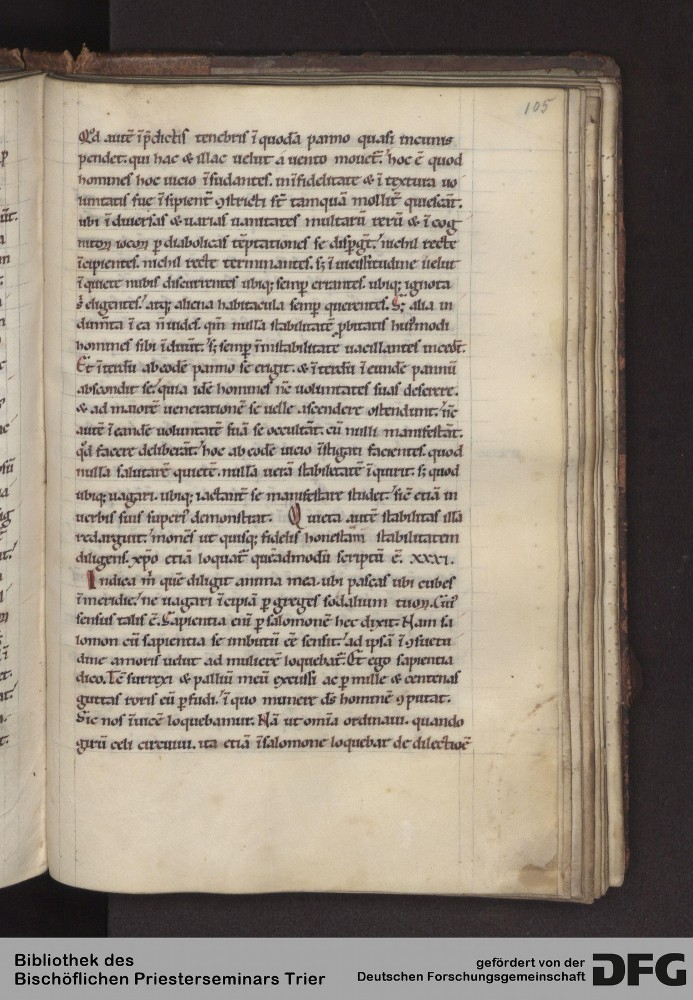 105
Qd̛ autē īp̄dictis tenebris ī quodā panno quasi incunis
pendet. qui hac & illac uelut a uento mouet̄. hoc ē quod
homines hoc uicio īsudantes. in īfidelitate & ī textura uo
luntatis sue īsipient̄ ꝯstricti st̄ tamquā mollit̄ quiescāt.
ubi ī diuersas & uarias uanitates multarū rerū & ī cog
nitoꝝ iocoꝝ ꝑ diabolicas tēptationes se disꝑgt̄. nichil recte
īcipientes. nichil recte terminantes. sꝫ ī uicissitudine uelut
ī quiete nubis discurrentes ubiqꝫ semꝑ errantes. ubiqꝫ ignota
eligentes. atqꝫ aliena habitacula semꝑ querentes. Sꝫ alia in
dum̄ta ī ea n̄ uides. qm̄ nulla stabilitatē ꝓbitatis hui᷒modi
homines sibi īduūt. sꝫ semꝑ īinstabilitate uacillantes incedt̄.
Et īterdū ab eodē panno se erigit. & īterdū ī eundē pannū
abscondit se. quia idē homines nc̄ uoluntates suas deserere.
& ad maiorē uenerationē se uelle ascendere ostendunt. nc̄
autē ī eandē uoluntatē suā se occultāt. cū nulli manifestāt.
qd̛ facere deliberāt. hoc ab eodē uicio īstigati facientes. quod
nulla salutarē quietē. nulla uerā stabilitatē īquirit. sꝫ quod
ubiqꝫ uagari. ubiqꝫ iactantē se manifestare studet. sic̄ etiā in
uerbis suis superi᷒ demonstrat. Quieta autē stabilitas illā
redarguit. monēs ut quisqꝫ fidelis honestam stabilitatem
diligens. xp̄o etiā loquat̄ quēadmodū scriptū ē. XXXI.
Indica m̄ quē diligit anima mea. ubi pascas ubi cubes
ī meridie. ne uagari īcipiā ꝑ greges sodalium tuoꝝ. Cui᷒
sensus talis ē. Sapientia eni̅ ꝑ salomonē hec dixit. Nam sa
lomon cū sapientia se imbutū eē sensit. ad ipsā ī ꝯsuetu
dine amoris uelut ad mulierē loquebat̄. Et ego sapientia
dico. Tc̄ surrexi & palliū meū excussi ac ꝑ mille & centenas
guttas roris eū ꝑfudi. ī quo munere ds̄ hominē ꝯputat.
Sic nos īuicē loquebamur. Nā ut omīa ordinaui. quando
girū celi circuiui. ita etiā ī salomone loquebar de dilectiōe
Bibliothek des
Bischöflichen Priesterseminars Trier
gefördert von der
Deutschen Forschungsgemeinschaft
DFG